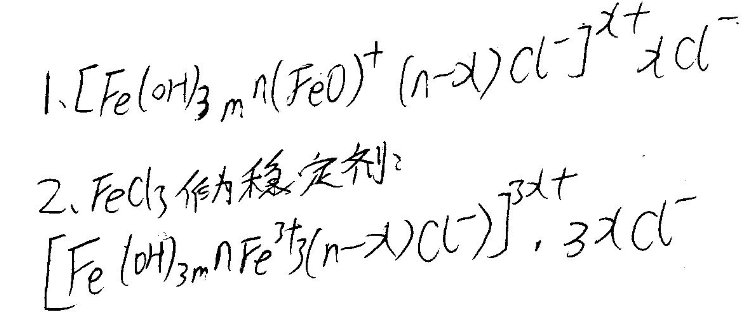 1、[Fe(OH)₃ ₘ n(FeO)⁺ (n-x)Cl⁻]ˣ⁺ xCl⁻
2、FeCl₃作为稳定剂:
[Fe(OH)₃ₘnFe³⁺3(n-x)Cl⁻)]³ˣ⁺·3xCl⁻